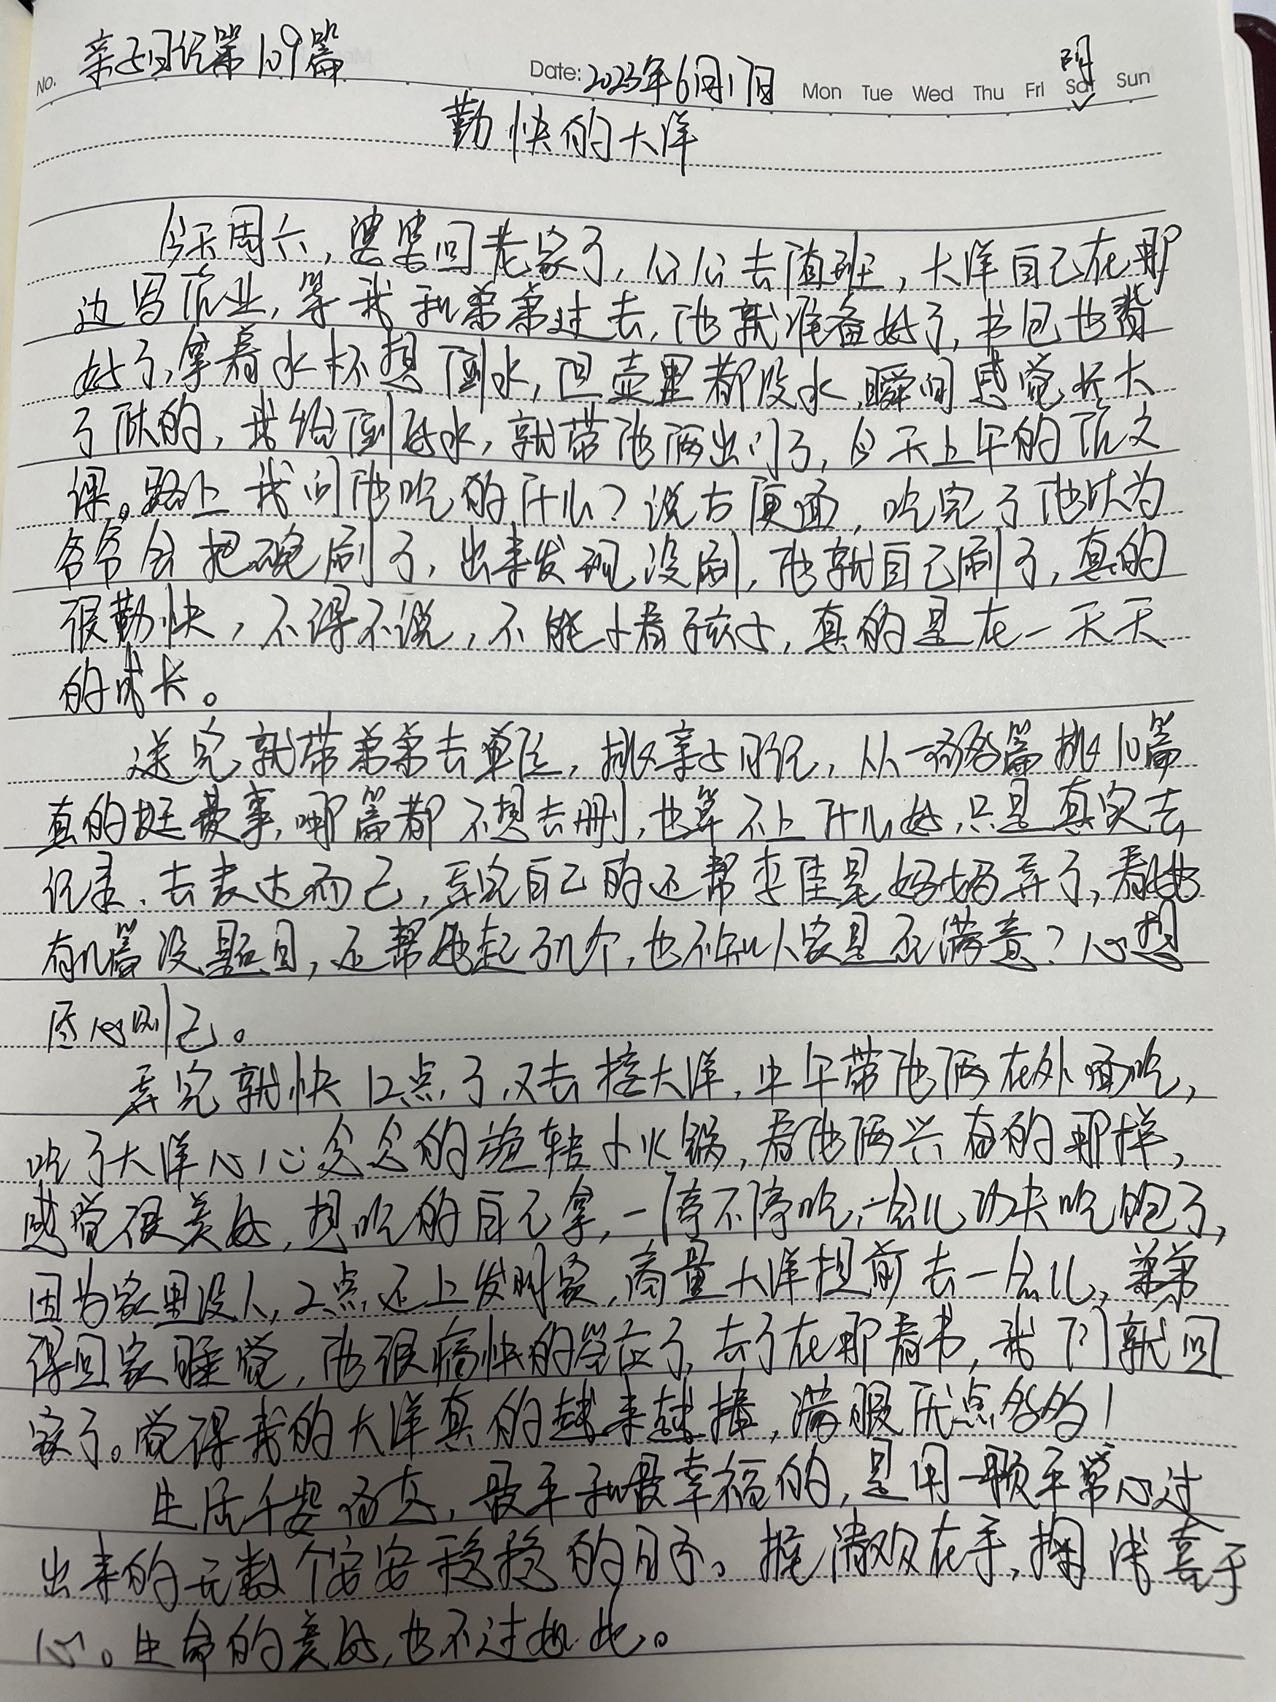 No. 亲子日记第109篇 Date: 2023年6月17日 Mon Tue Wed Thu Fri Sat Sun 阴
勤快的大洋
今天周六，婆婆回老家了，公公去值班，大洋自己在那
边写作业，等我和弟弟过去，他就准备好了，书包也背
好了，拿着水杯想倒水，但壶里都没水，瞬间感觉长大
了似的，我给倒好水，就带他俩出门了，今天上午的作文
课。路上我问他吃的什么？说方便面，吃完了他以为
爷爷会把碗刷了，出来发现没刷，他就自己刷了，真的
很勤快，不得不说，不能小看孩子，真的是在一天天
的成长。
送完就带弟弟去单位，挑亲子日记，从一百多篇挑10篇
真的挺费事，哪篇都不想去删，也算不上什么好，只是真实去
记录、去表达而已，弄完自己的还帮李佳星妈妈弄了，看她
有几篇没题目，还帮她起了几个，也不知人家是否满意？心想
尽心则已。
弄完就快12点了，又去接大洋，中午带他俩在外面吃，
吃了大洋心心念念的旋转小火锅，看他俩兴奋的那样，
感觉很美好，想吃的自己拿，一停不停吃，一会儿功夫吃饱了，
因为家里没人，2点还上发明家，商量大洋提前去一会儿，弟弟
得回家睡觉，他很痛快的答应了，去了在那看书，我们就回
家了。觉得我的大洋真的越来越棒，满眼优点多多！
生活千姿百态，最平和最幸福的，是用一颗平常心过
出来的无数个安安稳稳的日子。掬清欢在手，掬浅喜于
心。生命的美好，也不过如此。